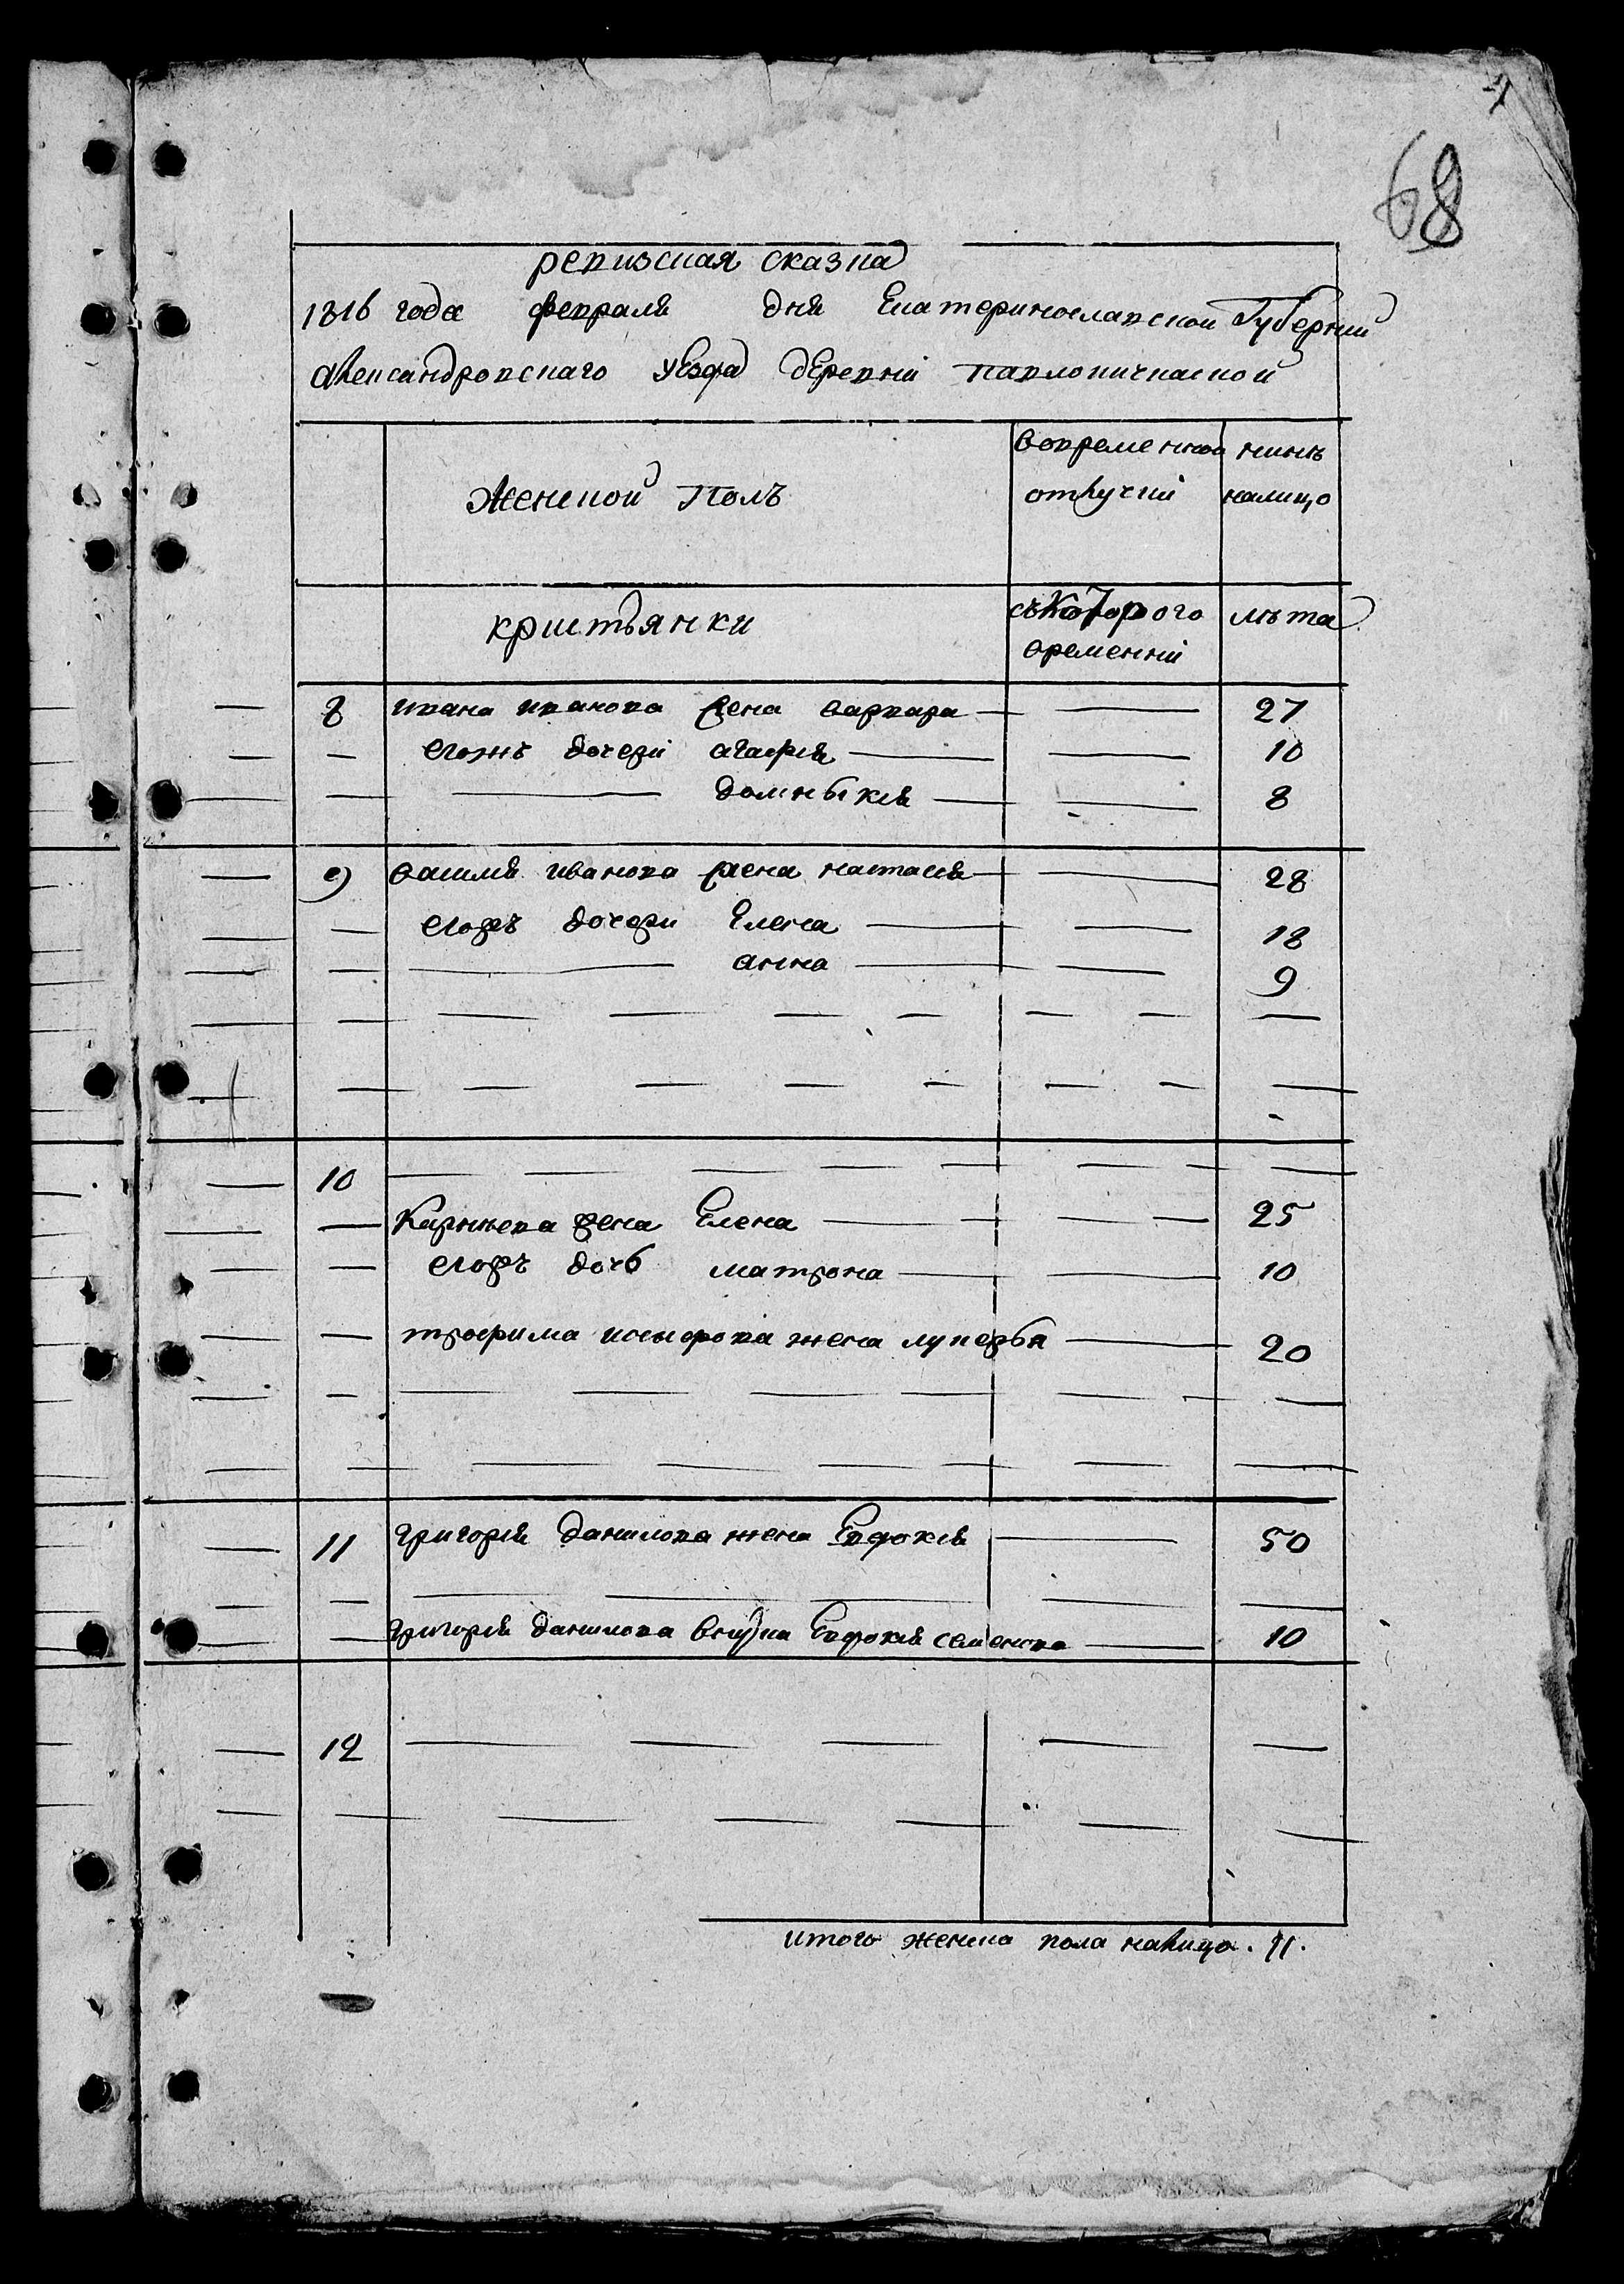 68
ревизская сказка
1816 года февраля дня Екатеринославской Губернии
Александровскаго уезда деревни павлокичкаской
Женской Полъ
вовременной отлучкий
нинѣ налицо
криштьянки
съКоторого временний
лѣта
8 ивана иванова жена варвара — — 27
— егожъ дочери агафия — — 10
— — домныкия — — 8
9 василия иванова жена настасия — — 28
— егожъ дочери Елена — — 18
— — анна — — 9
10
— Карнѣева жена Елена — — 25
— егожъ дочь матрона — — 10
— трофима никифорова жена лукерья — 20
11 григория данилова жена Евдокия — 50
— григория данилова внука Евдокия семенова — 10
12
итого женска пола налицо. 11.